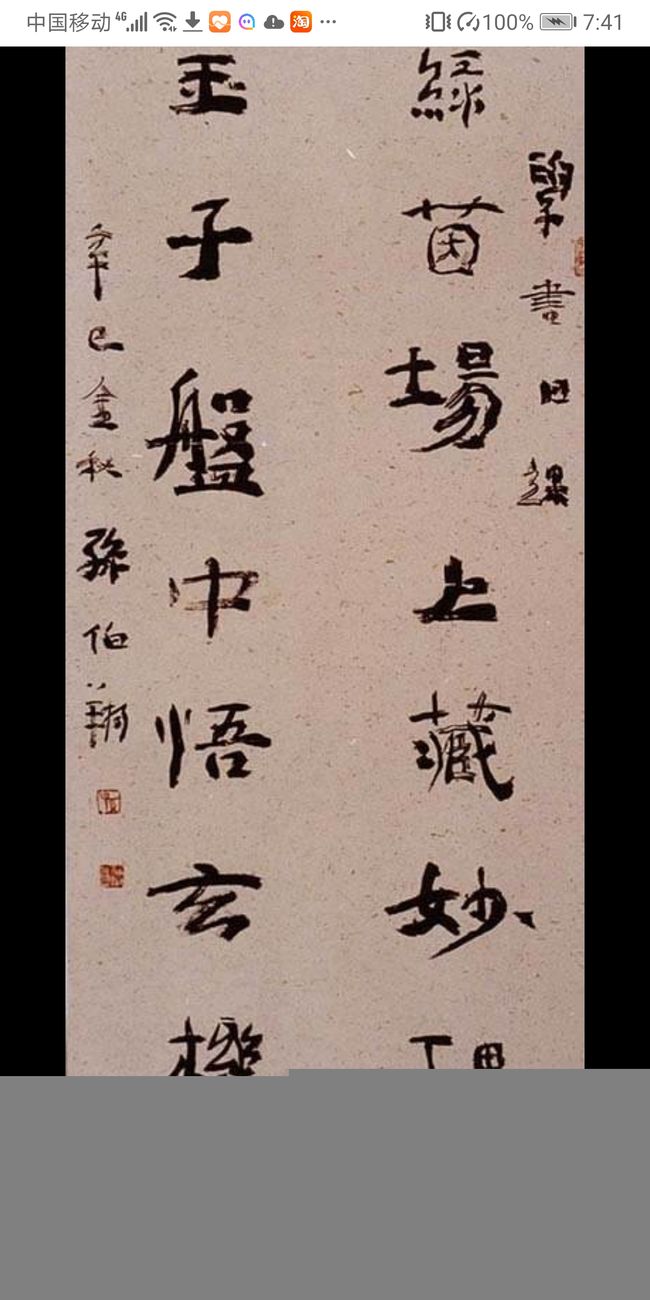 中国移动 4G 100% 7:41
書日課
綠茵場上藏妙理
玉子盤中悟玄機
辛巳金秋孫伯翔